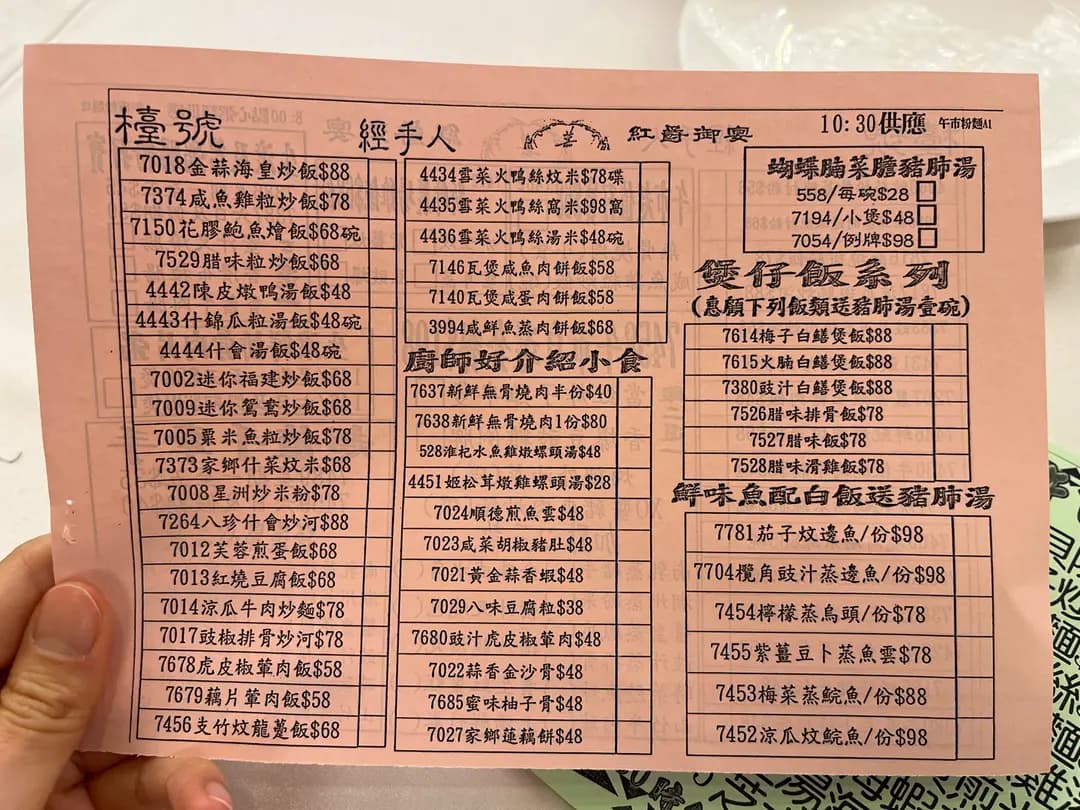 檯號
經手人
紅爵御宴
10:30供應 午市粉麵A1
7018金蒜海皇炒飯$88
7374咸魚雞粒炒飯$78
7150花膠鮑魚燴飯$68碗
7529腊味粒炒飯$68
4442陳皮燉鴨湯飯$48
4443什錦瓜粒湯飯$48碗
4444什會湯飯$48碗
7002迷你福建炒飯$68
7009迷你鴛鴦炒飯$68
7005粟米魚粒炒飯$78
7373家鄉什菜炆米$68
7008星洲炒米粉$78
7264八珍什會炒河$88
7012芙蓉煎蛋飯$68
7013紅燒豆腐飯$68
7014涼瓜牛肉炒麵$78
7017豉椒排骨炒河$78
7678虎皮椒葷肉飯$58
7679藕片葷肉飯$58
7456支竹炆龍躉飯$68
4434雪菜火鴨絲炆米$78碟
4435雪菜火鴨絲窩米$98窩
4436雪菜火鴨絲湯米$48碗
7146瓦煲咸魚肉餅飯$58
7140瓦煲咸蛋肉餅飯$58
3994咸鮮魚蒸肉餅飯$68
廚師好介紹小食
7637新鮮無骨燒肉半份$40
7638新鮮無骨燒肉1份$80
528淮杞水魚雞燉螺頭湯$48
4451姬松茸燉雞螺頭湯$28
7024順德煎魚雲$48
7023咸菜胡椒豬肚$48
7021黃金蒜香蝦$48
7029八味豆腐粒$38
7680豉汁虎皮椒葷肉$48
7022蒜香金沙骨$48
7685蜜味柚子骨$48
7027家鄉蓮藕餅$48
蝴蝶腩菜膽豬肺湯
558/每碗$28
7194/小煲$48
7054/例牌$98
煲仔飯系列
(惠顧下列飯類送豬肺湯壹碗)
7614梅子白鱔煲飯$88
7615火腩白鱔煲飯$88
7380豉汁白鱔煲飯$88
7526腊味排骨飯$78
7527腊味飯$78
7528腊味滑雞飯$78
鮮味魚配白飯送豬肺湯
7781茄子炆邊魚/份$98
7704欖角豉汁蒸邊魚/份$98
7454檸檬蒸烏頭/份$78
7455紫薑豆卜蒸魚雲$78
7453梅菜蒸鯇魚/份$88
7452涼瓜炆鯇魚/份$98